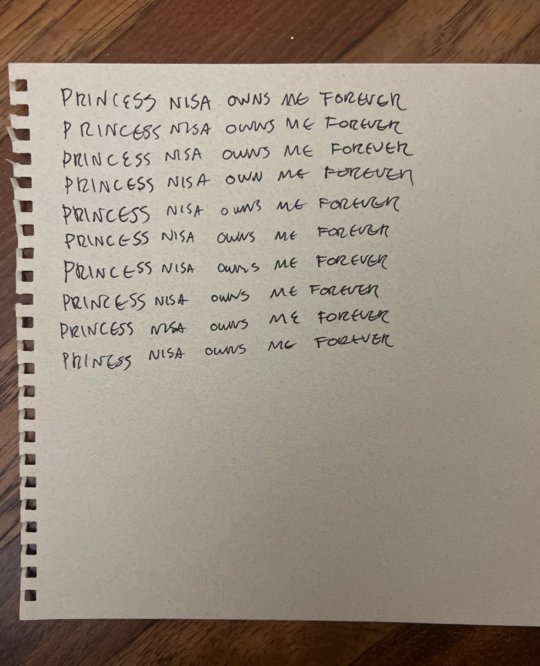 PRINCESS NISA OWNS ME FOREVER
PRINCESS NISA OWNS ME FOREVER
PRINCESS NISA OWNS ME FOREVER
PRINCESS NISA OWN ME FOREVER
PRINCESS NISA OWNS ME FOREVER
PRINCESS NISA OWNS ME FOREVER
PRINCESS NISA OWNS ME FOREVER
PRINCESS NISA OWNS ME FOREVER
PRINCESS NISA OWNS ME FOREVER
PRINESS NISA OWNS ME FOREVER